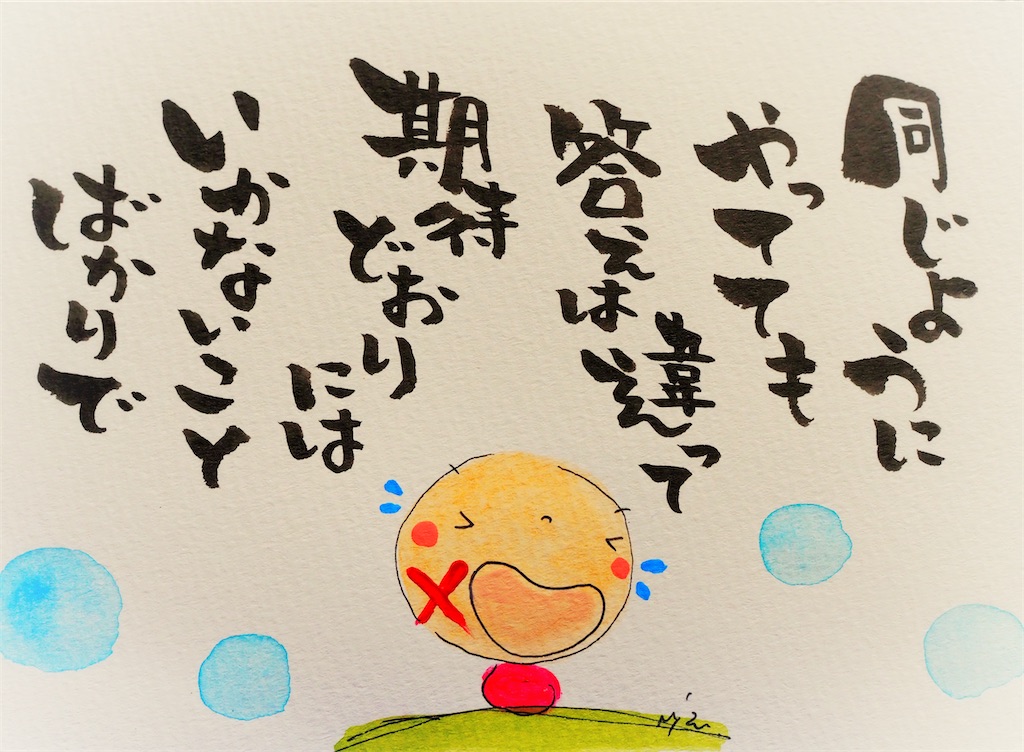 同じように
やってても
答えは
違って
期待
どおり
には
いかない
いこと
ばかりで